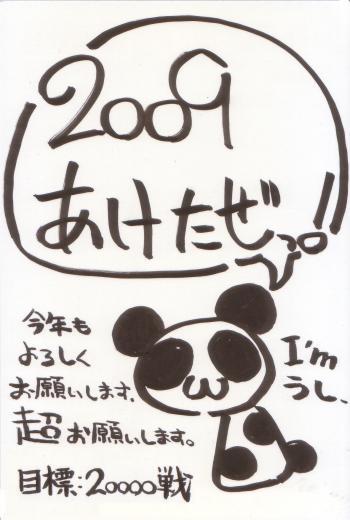 2009
あけたぜっ。!!
今年も
よろしく
お願いします。
超お願いします。
目標:20000戦
I'm
うし、